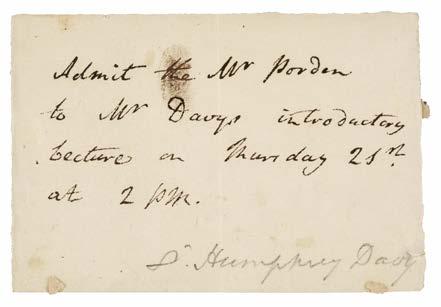 Admit the Mr Porden
to Mr Davys introductory
Lecture on Thursday 21st
at 2 pm.
Sr. Humphrey Davy